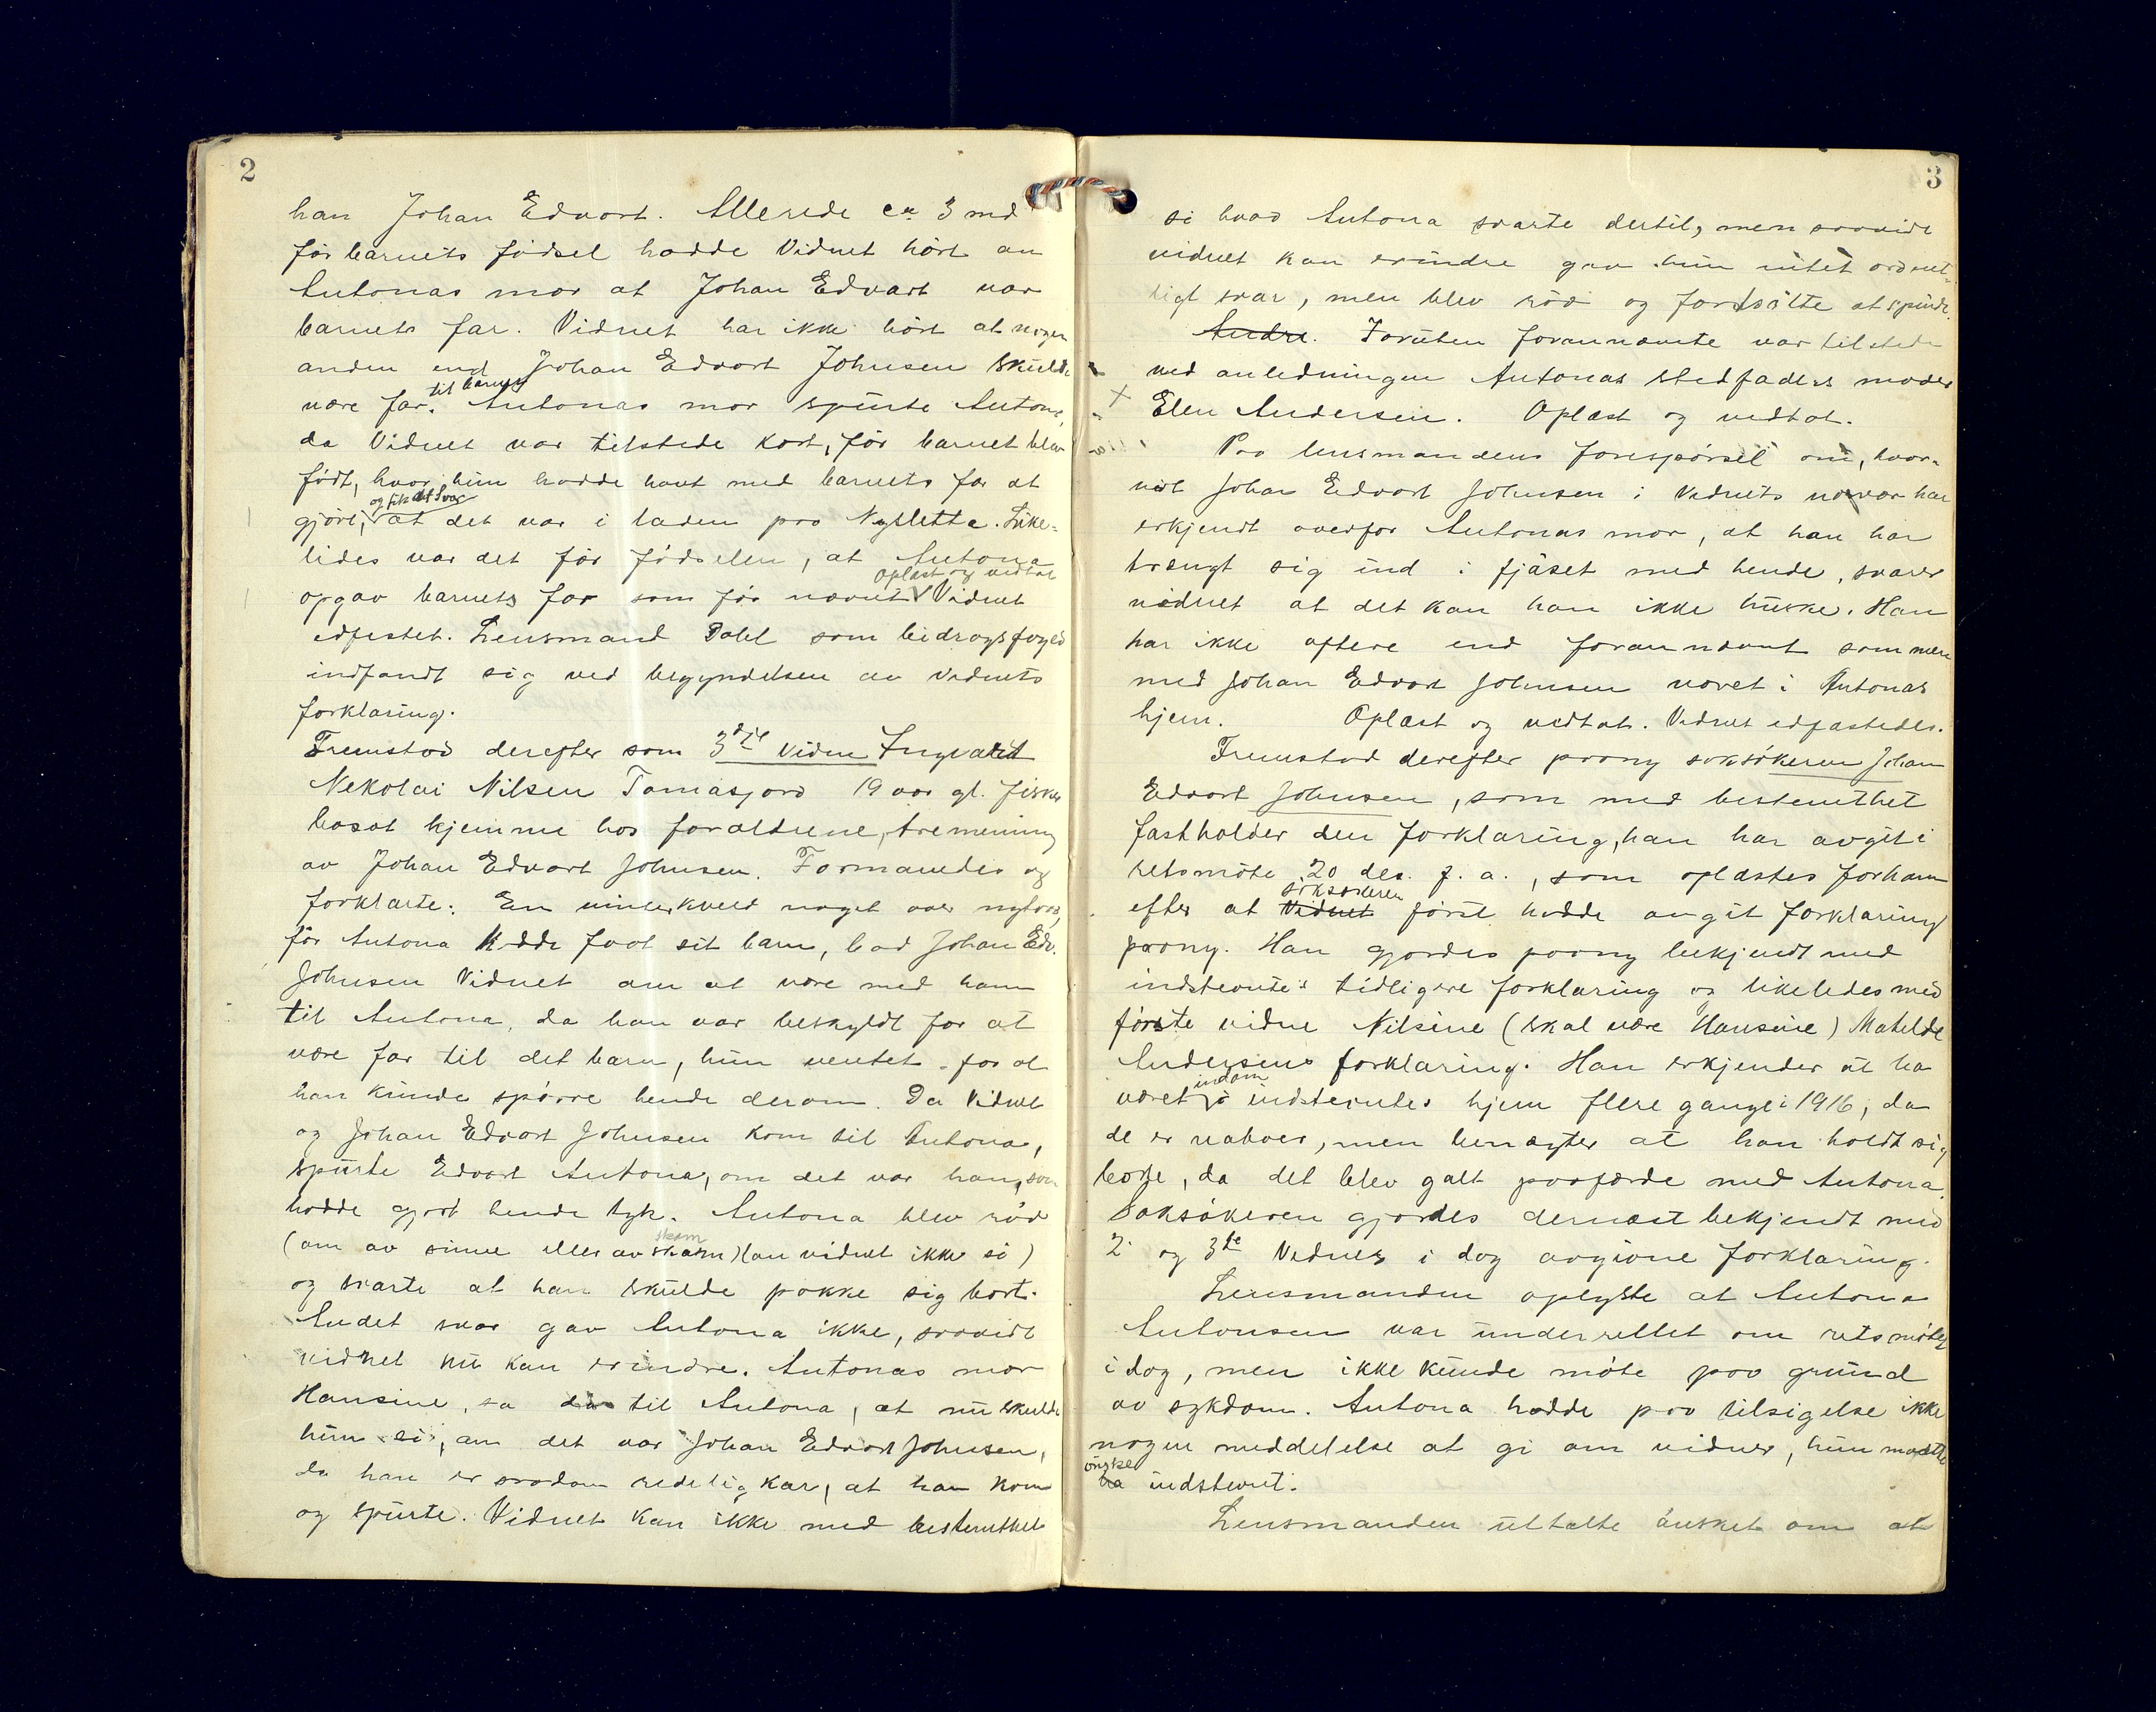 2
han Johan Edvart. Allerede ca 3 md
før barnets fødsel hadde Vidnet hørt av
Antonas mor at Johan Edvart var
barnets far. Vidnet har ikke hørt at nogen
anden end Johan Edvart Johnsen skulde
til barnet
være far. Antonas mor spurte Antona,
da Vidnet var tilstede kort, før barnet blev
født, hvor hun hadde havt med barnets far at
og fik det svar
gjøre, at det var i laden paa Nysletta. Like-
ledes var det før fødselen, at Antona
Oplæst og vedtat
opgav barnets far som før nævnt Vidnet
edfestet. Lensmand Dahl som bidragsfoged
indfandt sig ved begyndelsen av Vidnets
forklaring.
Fremstod derefter som 3dje Vidne Ingvald
Nekolai Nilsen Tomasjord 19 aar gl. fisker
bosat hjemme hos forældrene, tremening
av Johan Edvart Johnsen. Formanedes og
forklarte: En vinterkveld noget over nytaar,
før Antona hadde faat sit barn, bad Johan Edv.
Johnsen Vidnet om at være med ham
til Antona, da han var beskyldt for at
være far til det barn, hun ventet, for at
han kunde spørre hende derom. Da Vidnet
og Johan Edvart Johnsen kom til Antona,
spurte Edvart Antona, om det var han, som
hadde gjort hende tyk. Antona blev rød
skam
(om av sinne eller av skam) (kan vidnet ikke si)
og svarte at han skulde pakke sig bort.
Andet svar gav Antona ikke, saavidt
vidnet nu kan erindre. Antonas mor
Hansine, sa da til Antona, at nu skulde
hun si, om det var Johan Edvart Johnsen,
da han er saadan redelig kar, at han kom
og spurte. Vidnet kan ikke med bestemthet
3
si hvad Antona svarte dertil, men saavidt
vidnet kan erindre gav hun intet ordent-
ligt svar, men blev rød og fortsatte at spinde.
Andre. Foruten forannævnte var tilstede
ved anledningen Antonas stedfaders moder
Elen Andersen. Oplæst og vedtat.
Paa lensmandens forespørsel om, hvor-
vidt Johan Edvart Johnsen i Vidnets nærvær har
erkjendt overfor Antonas mor, at han har
trængt sig ind i fjøset med hende, svarer
vidnet at det kan han ikke huske. Han
har ikke oftere end forannævnt sammen
med Johan Edvart Johnsen været i Antonas
hjem. Oplæst og vedtat. Vidnet edfæstedes.
Fremstod derefter paany saksøkeren Johan
Edvart Johnsen, som med bestemthet
fastholder den forklaring, han har avgit i
retsmøte 20 des. f. a., som oplæstes for ham
saksøkeren
efter at Vidnet først hadde avgit forklaring
paany. Han gjordes paany bekjendt med
indstevnte's tidligere forklaring og likeledes med
første vidne Nilsine (skal være Hansine) Matelde
Andersens forklaring. Han erkjender at ha
indom
været i indstevntes hjem flere gange i 1916, da
de er naboer, men benægter at han holdt sig
borte, da det blev galt paafærde med Antona.
Saksøkeren gjordes dernæst bekjendt med
2. og 3die Vidnes i dag avgivne forklaring.
Lensmanden oplyste at Antona
Antonsen var underrettet om retsmøtet
i dag, men ikke kunde møte paa grund
av sykdom. Antona hadde paa tilsigelse ikke
nogen meddelelse at gi om vidner, hun maatte
ønske
ha indstevnt.
Lensmanden uttalte ønsket om at